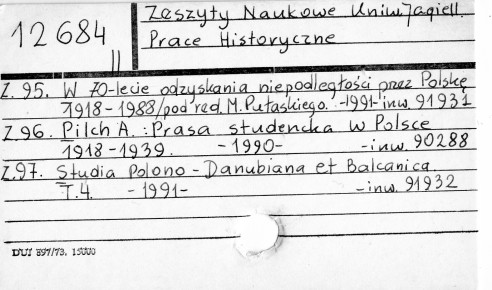 12684
II
Zeszyty Naukowe Uniw. Jagiell.
Prace Historyczne
Z. 95. W 70-lecie odzyskania niepodległości przez Polskę
1918-1988/pod red. M. Pułaskiego. -1991- inw. 91931
Z 96. Pilch A.: Prasa studencka w Polsce
1918-1939. -1990- -inw. 90288
Z.97. Studia Polono-Danubiana et Balcanica.
T.4. -1991- -inw. 91932
DUJ 897/73. 15000